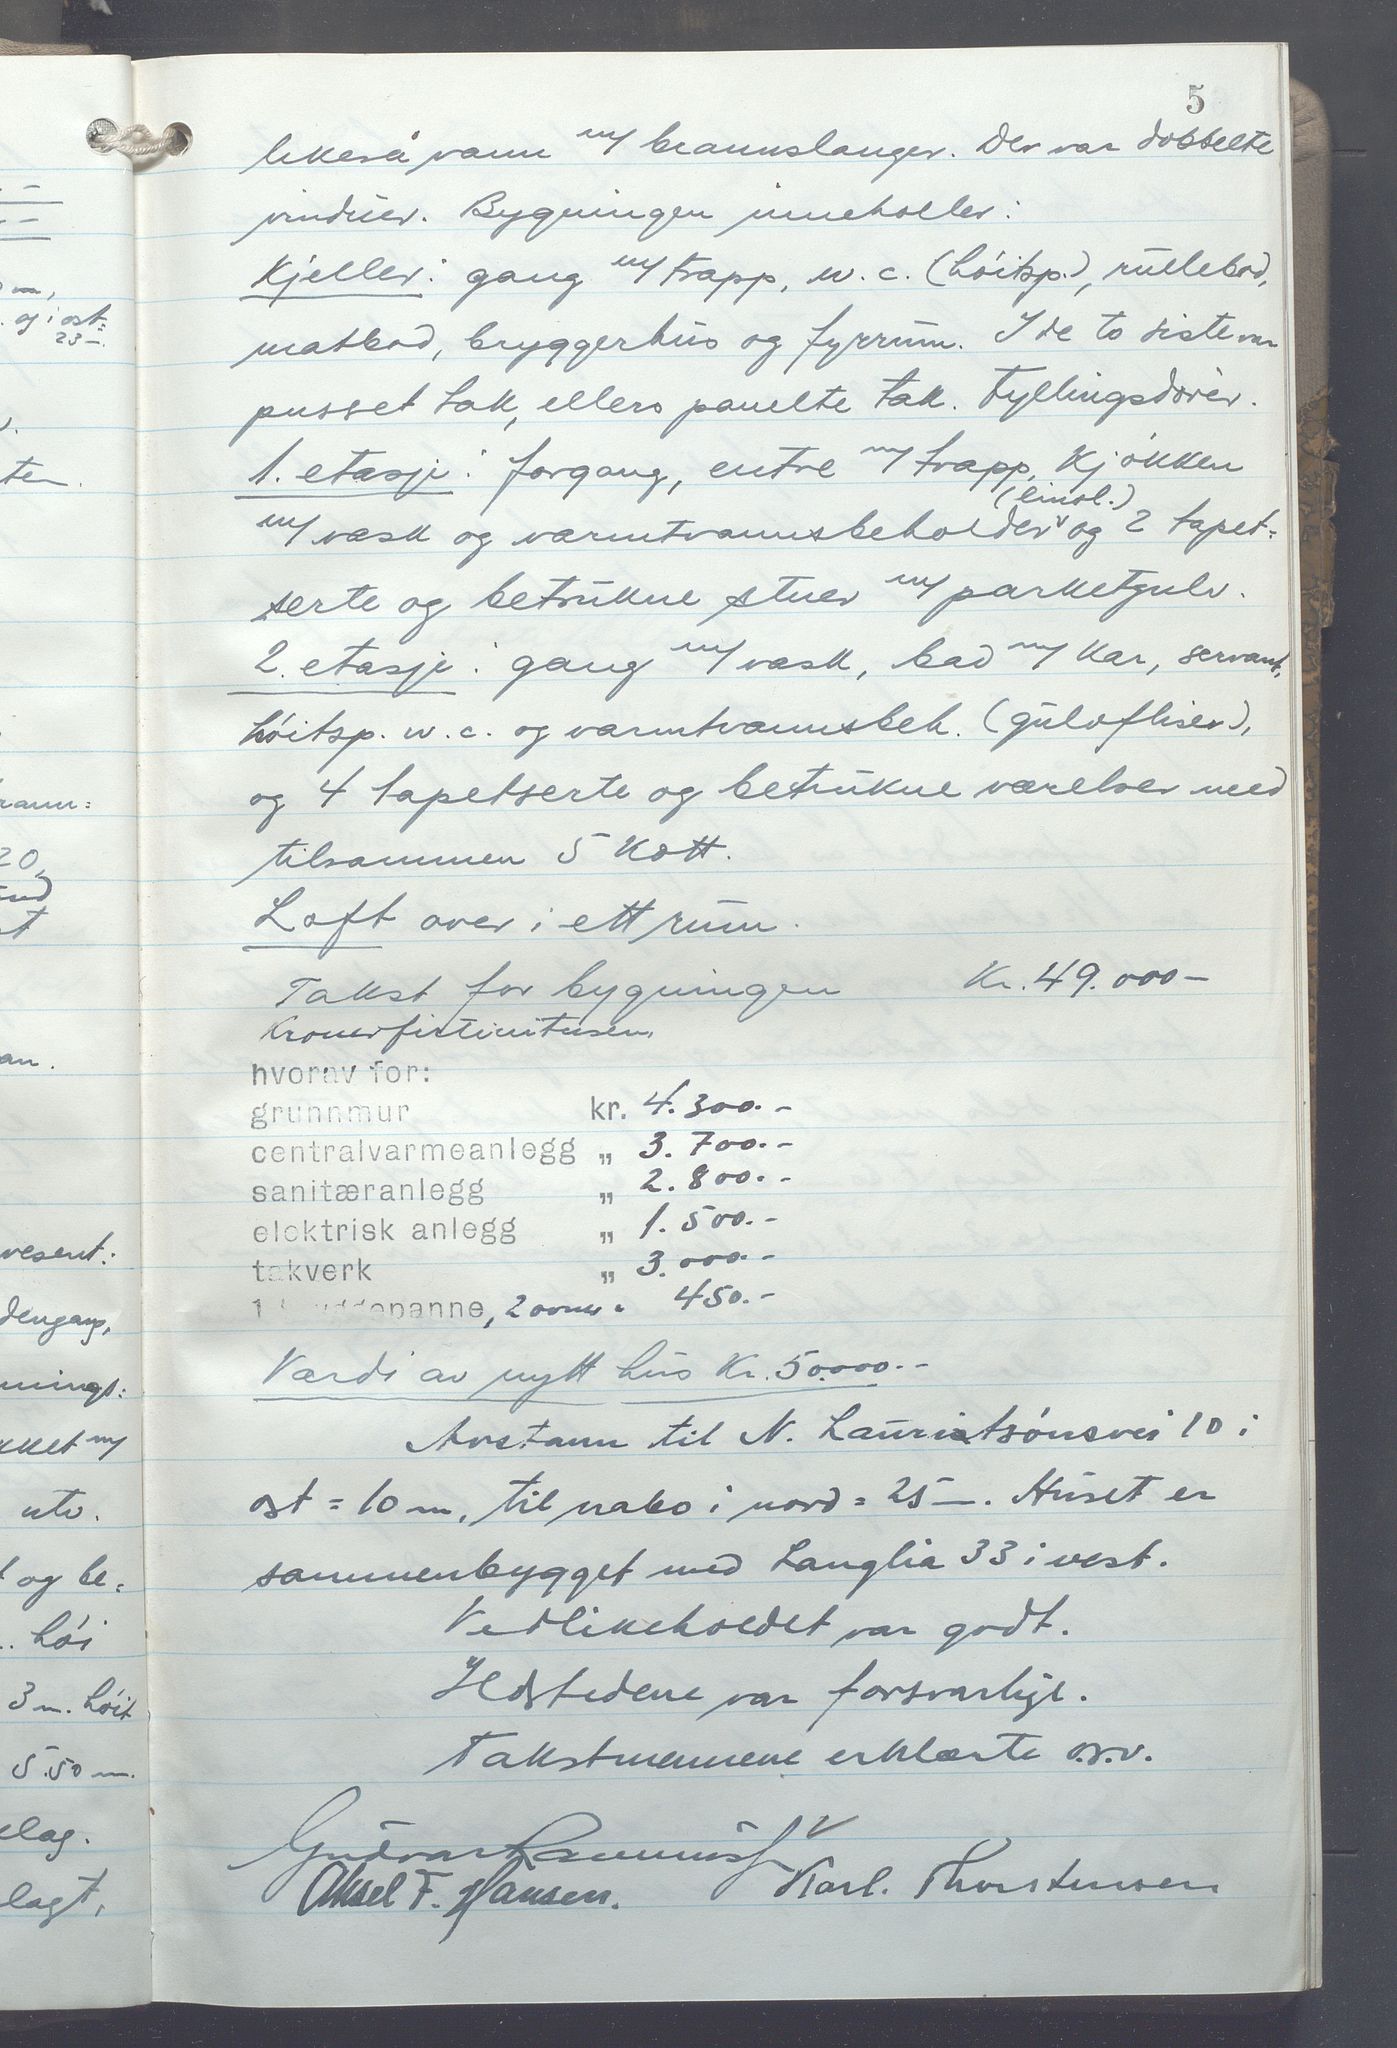 5
likeså vann m/ brannslanger. Der var dobbelte
vinduer. Bygningen inneholler:
Kjeller: gang m/ trapp, w.c. (höitsp.), rullebod,
matbod, bryggerhus og fyrrum. I de to siste var
pusset tak, ellers panelte tak. Fyllingsdører.
1. etasje: forgang, entre m/ trapp, kjøkken
(einsl.)
m/ vask og varmtvannsbeholder og 2 tapet=
serte og betrukne stuer m/ parketgulv.
2. etasje: gang m/ vask, bad m/ kar, servant,
höitsp. w.c. og varmtvannsbeh. (gulvfliser),
og 4 tapetserte og betrukne værelser med
tilsammen 5 kott.
Loft over i ett rum.
Takst for bygningen Kr. 49.000-
Kronerførtinitusen.
hvorav for:
grunnmur kr. 4.300.-
centralvarmeanlegg „ 3.700.-
sanitæranlegg „ 2.800.-
elektrisk anlegg „ 1.500.-
takverk „ 3.000.-
1 bryggepanne, 2 ovner „ 450.-
Værdi av nytt hus Kr. 50.000.-
Avstann til N. Lauritsönsvei 10 i
øst = 10 m, til nabo i nord = 25 —. Huset er
sammenbygget med Langlia 33 i vest.
Vedlikeholdet var godt.
Ildstedene var forsvarlige.
Takstmennene erklærte o.s.v.
Aksel F. Hansen. Karl. Thorstensen